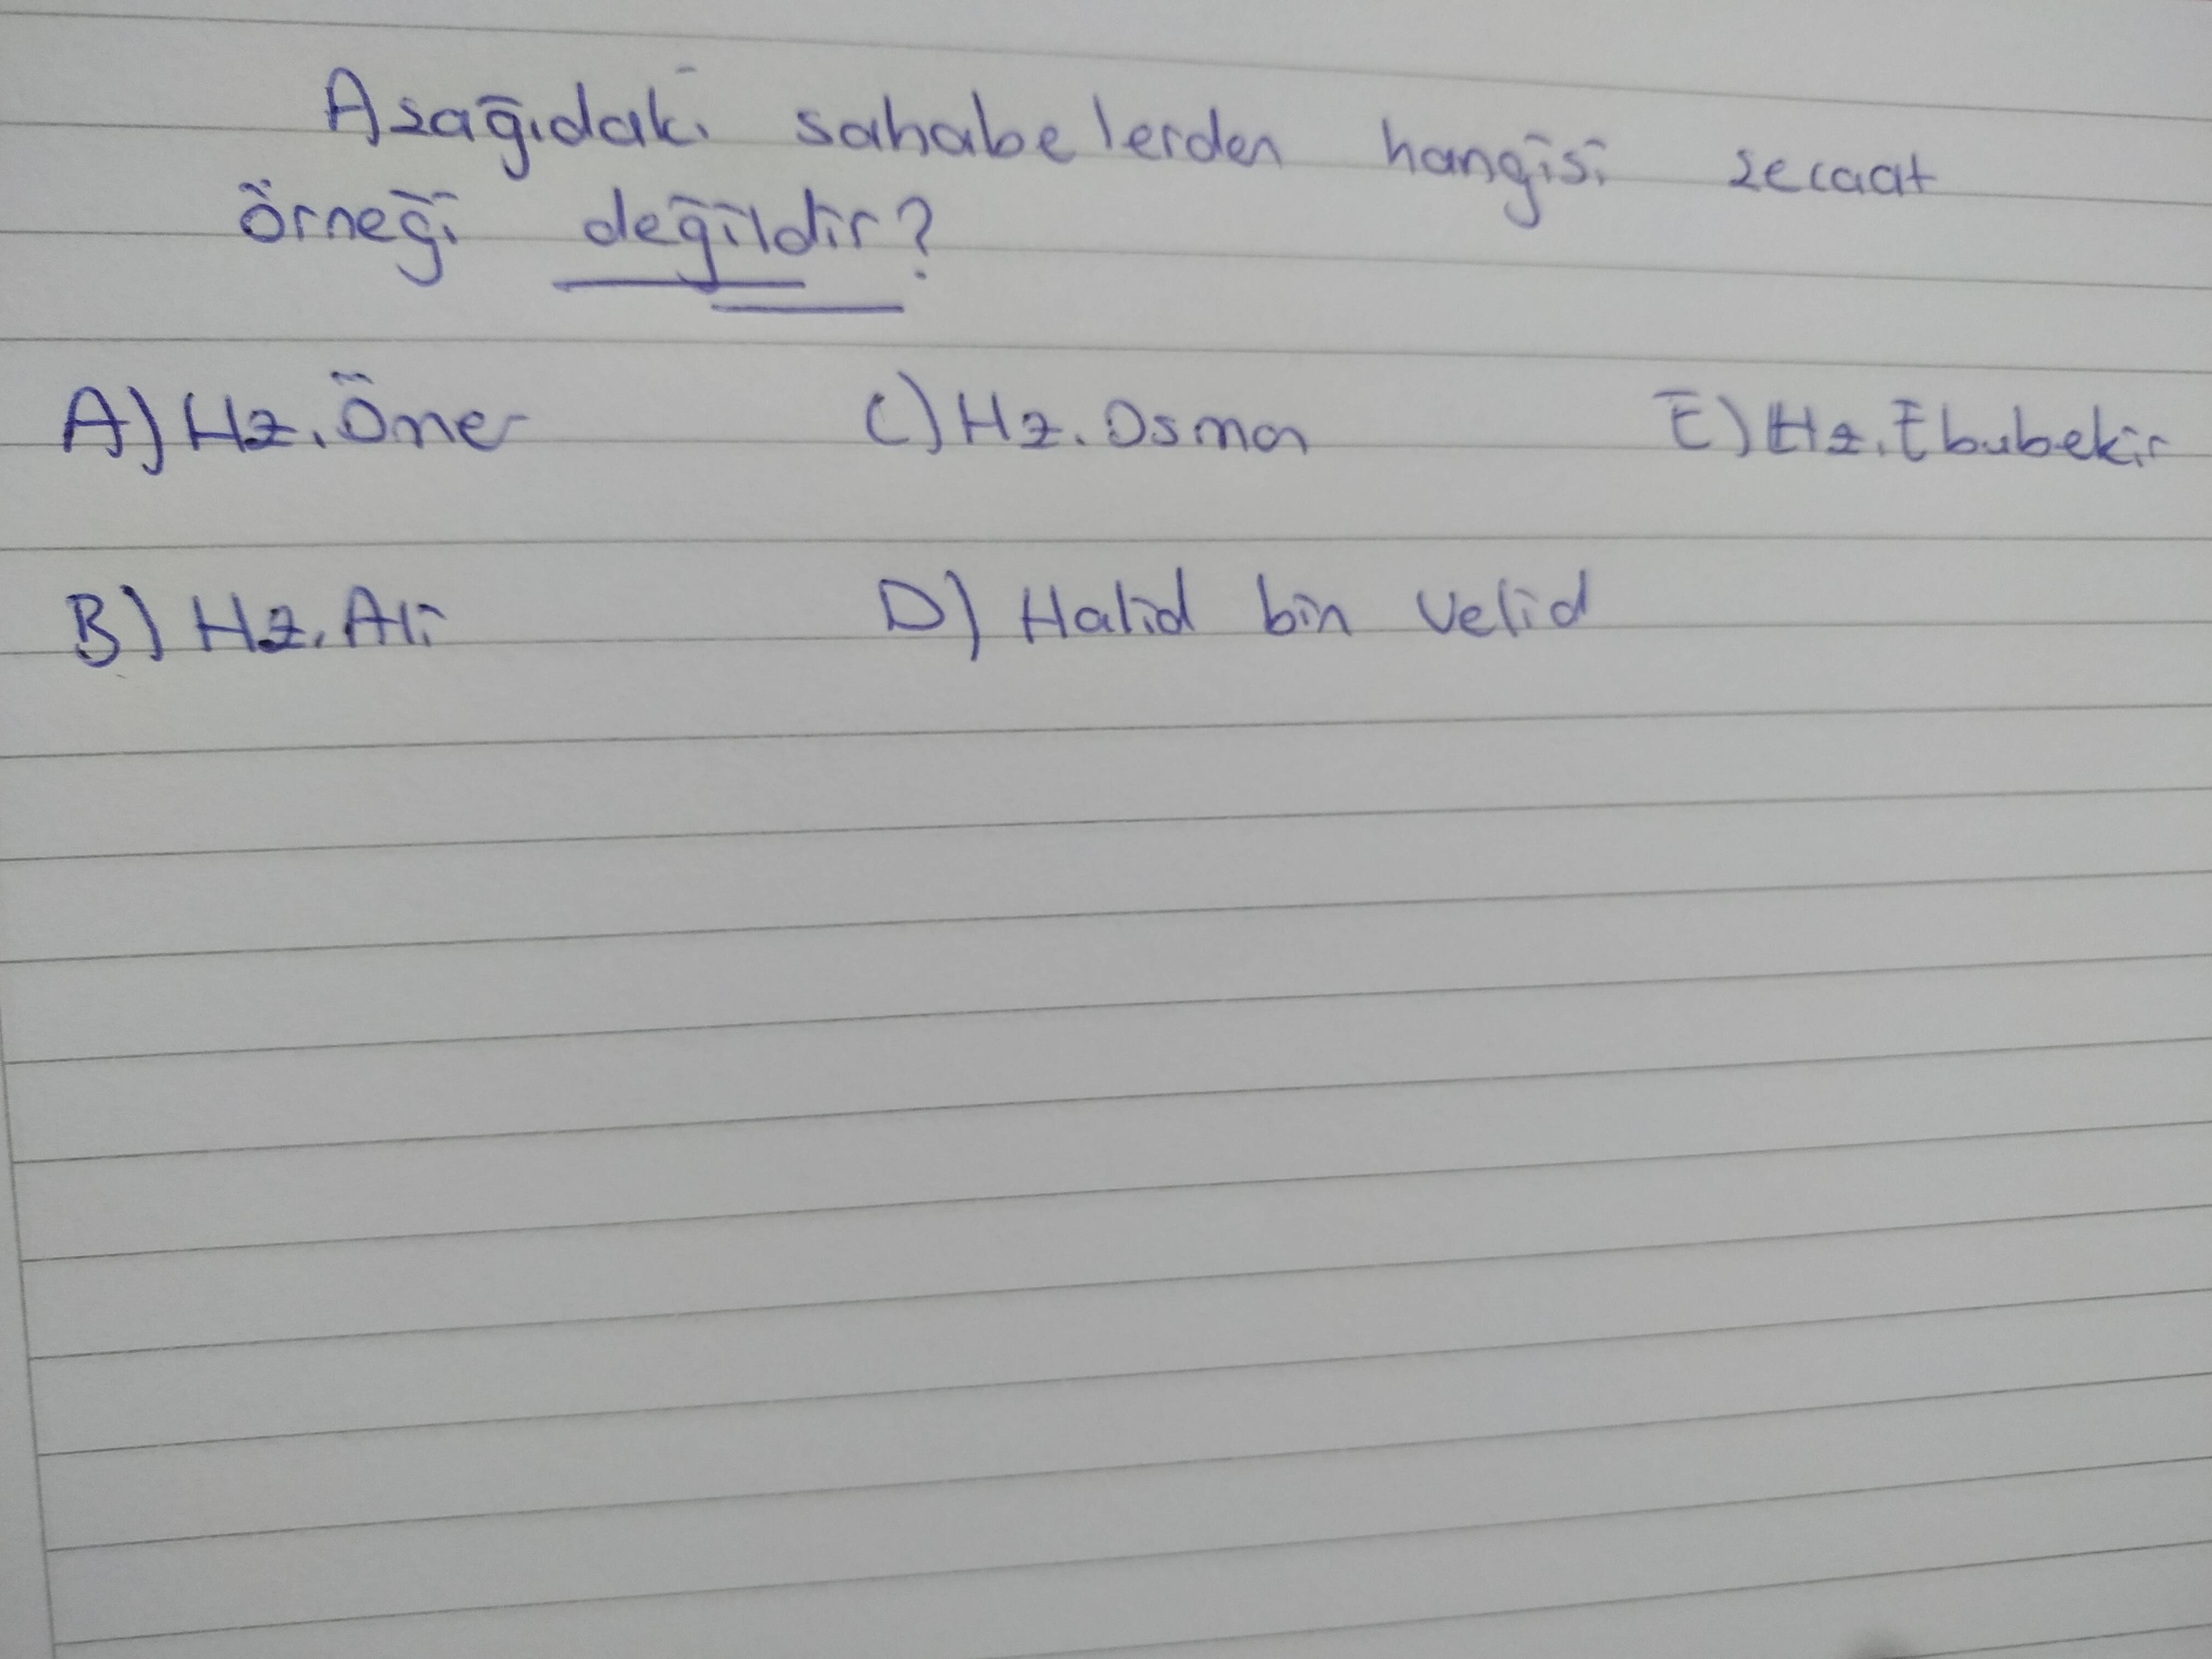 Asağıdaki sahabelerden hangisi secaat
örneği değildir?
A) Hz. Ömer C) Hz. Osman E) Hz. Ebubekir
B) Hz. Ali D) Halid bin Velid